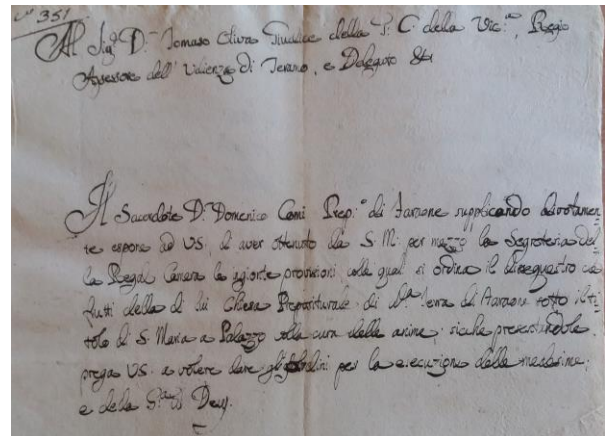 n° 351
Al Sig.r D. Tomaso Oliva Giudice della G. C. della Vic.ria, Regio
Assessore dell' Udienza di Teramo, e Delegato &.
Il Sacerdote D. Domenico Comi Prep.to di Faraone supplicando divotamen-
te espone ad VS. d'aver ottenuto da S. M. per mezzo la Segreteria del
la Regal Camera le provisioni colle quali si ordina il disequestro
frutti della di lui Chiesa Prepositurale di Terra di Faraone sotto il ti
tolo di S. Maria a Palazzo colla cura delle anime; sicche presentandole
prega VS. a volere dare gl'ordini per la esecuzione delle medesime;
e della